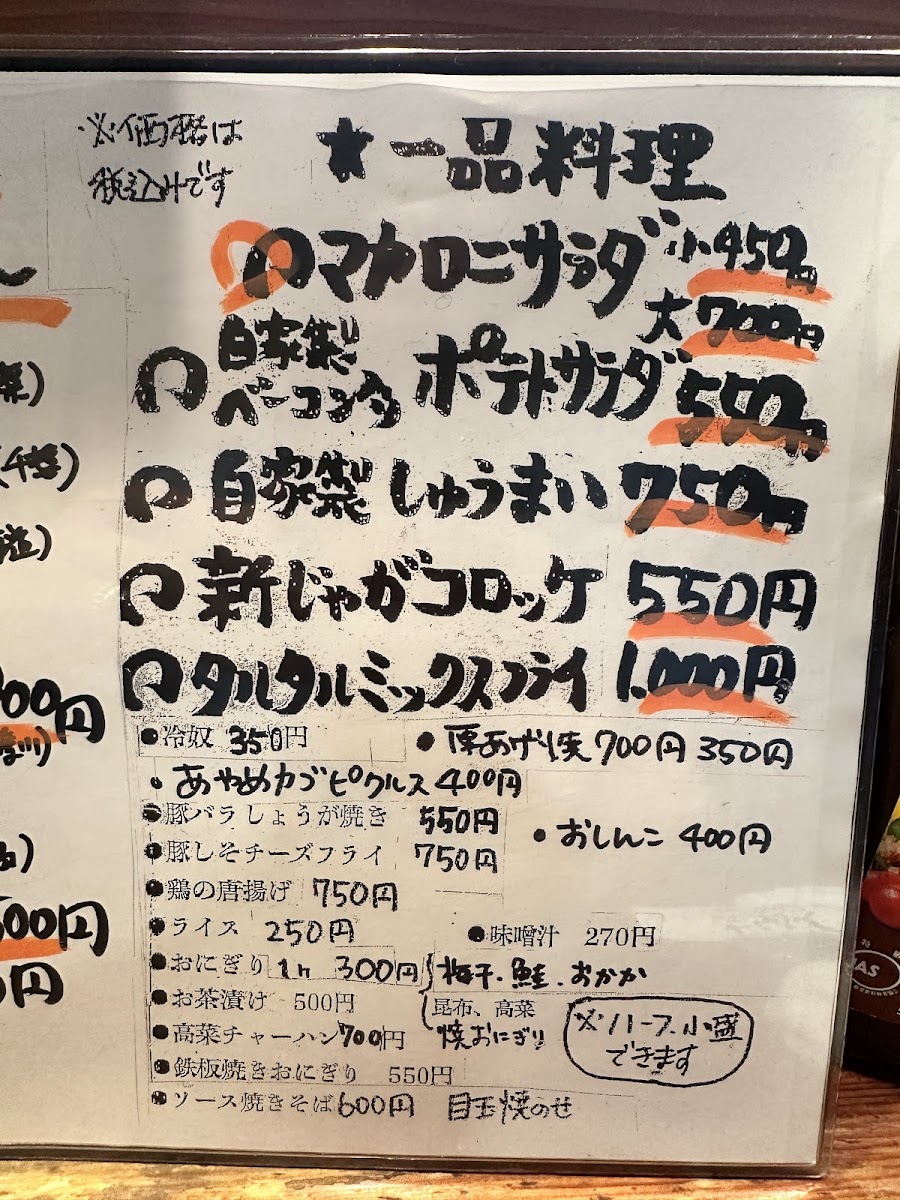 ※価格は
税込みです
★一品料理
マカロニサラダ 小450円
大700円
自家製
ベーコン入 ポテトサラダ 550円
自家製しゅうまい 750円
新じゃがコロッケ 550円
タルタルミックスフライ 1.000円
●冷奴 350円 ●厚あげ焼700円 350円
・あやめカブピクルス 400円
●豚バラしょうが焼き 550円
●おしんこ 400円
●豚しそチーズフライ 750円
●鶏の唐揚げ 750円
●ライス 250円 ●味噌汁 270円
●おにぎり 1ヶ 300円 梅干・鮭・おかか
●お茶漬け 500円 昆布、高菜
●高菜チャーハン700円 焼おにぎり
※ハーフ、小盛
できます
●鉄板焼きおにぎり 550円
●ソース焼きそば600円 目玉焼のせ
00円
500円
円